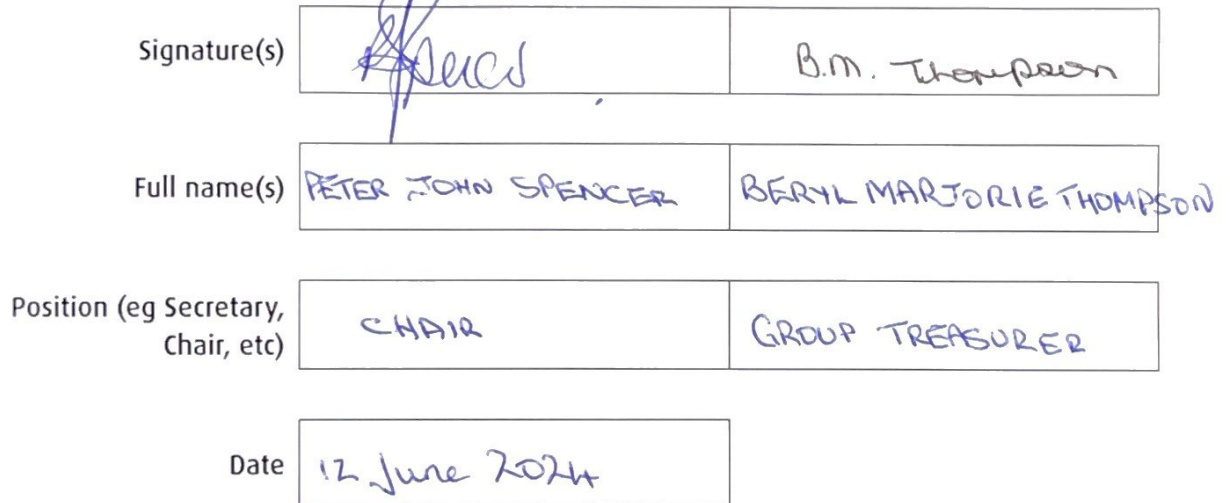 Signature(s)
B.M. Thompson
Full name(s) PETER JOHN SPENCER BERYL MARJORIE THOMPSON
Position (eg Secretary,
Chair, etc) CHAIR GROUP TREASURER
Date 12 June 2024